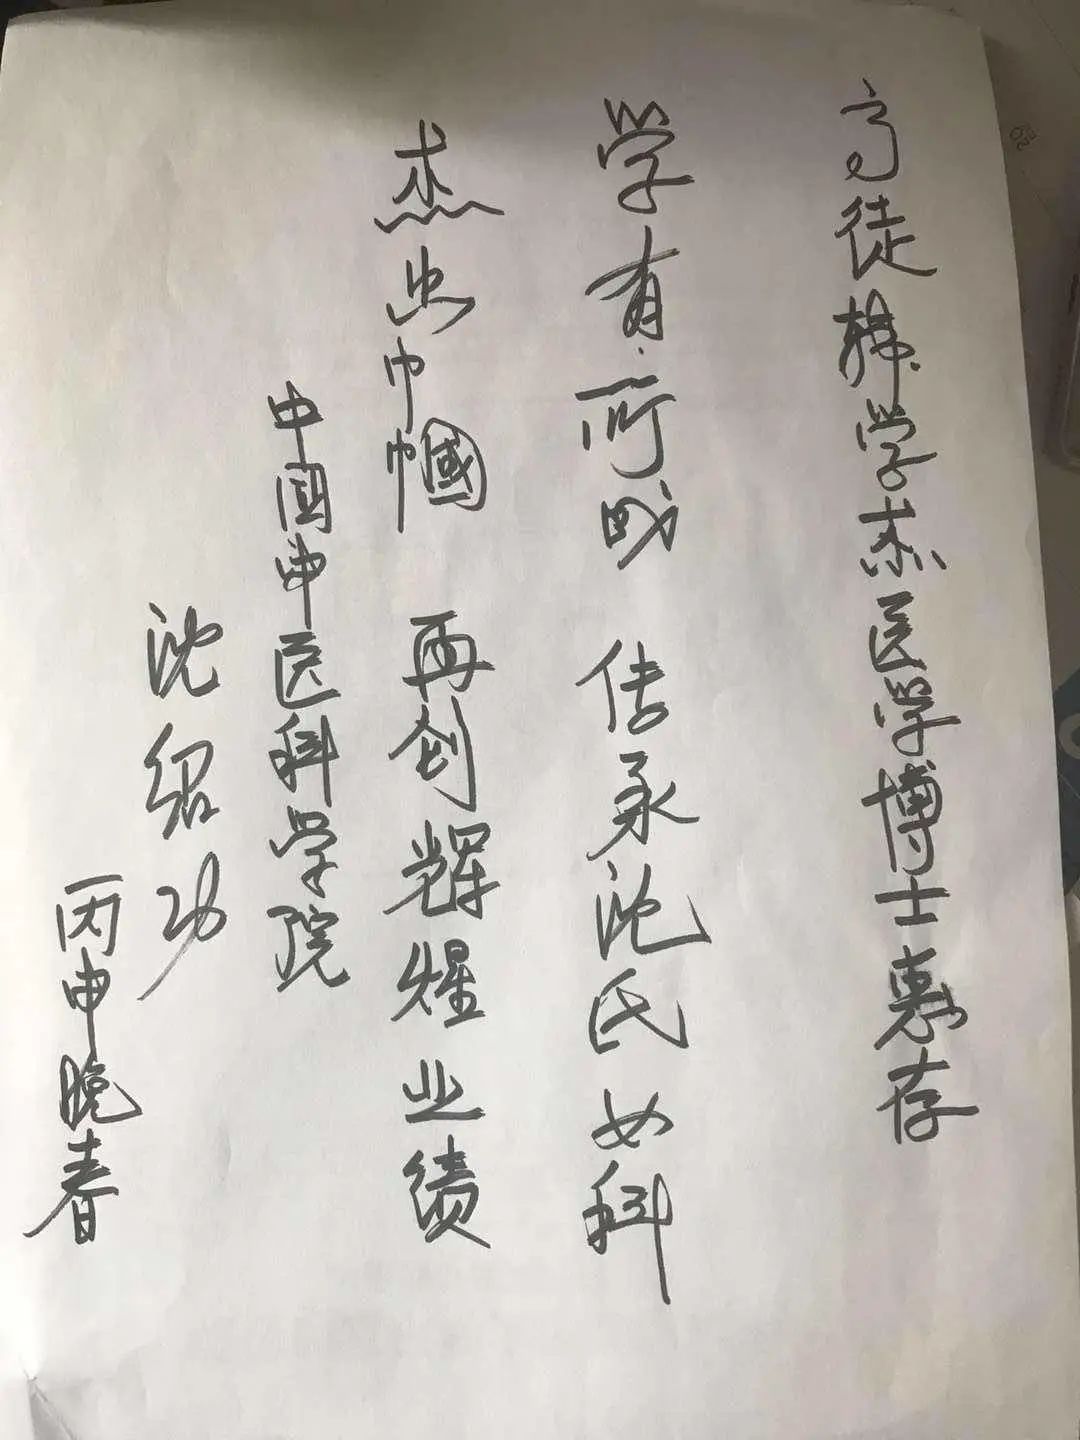 高徒韩学杰医学博士惠存
学有所成 传承沈氏女科
杰出巾帼 再创辉煌业绩
中国中医科学院
沈绍功
丙申晚春